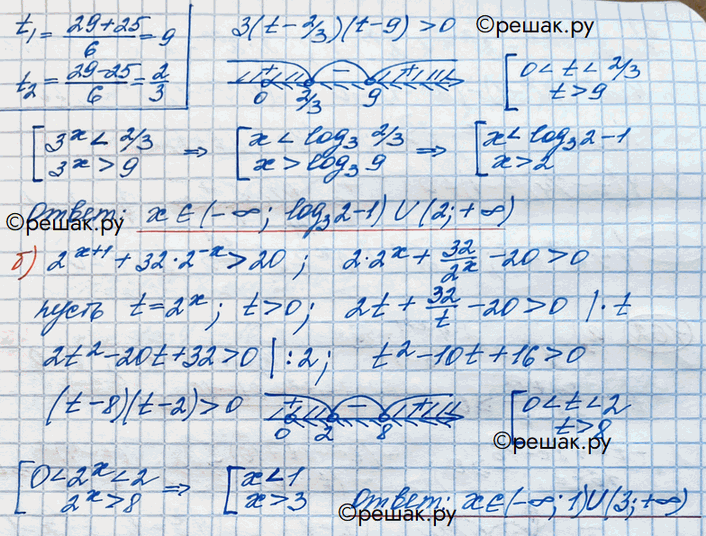 t₁ = (29+25)/6 = 9   3(t - 2/3)(t-9) > 0   ©решак.ру
t₂ = (29-25)/6 = 2/3   + - +   0 2/3 9   [ 0 < t < 2/3
t > 9
[ 3ˣ < 2/3   ⇒   [ x < log₃ 2/3   ⇒   [ x < log₃2 - 1
3ˣ > 9   x > log₃ 9   x > 2
©решак.ру
Ответ: x ∈ (-∞; log₃2-1) ∪ (2; +∞)
б) 2ˣ⁺¹ + 32·2⁻ˣ > 20 ; 2·2ˣ + 32/2ˣ - 20 > 0
пусть t = 2ˣ; t > 0; 2t + 32/t - 20 > 0 | · t
2t² - 20t + 32 > 0 | : 2 ; t² - 10t + 16 > 0
(t-8)(t-2) > 0   + - +   0 2 8   [ 0 < t < 2
t > 8
©решак.ру
[ 0 < 2ˣ < 2   ⇒   [ x < 1
2ˣ > 8   x > 3   Ответ: x ∈ (-∞; 1) ∪ (3; +∞)
©решак.ру